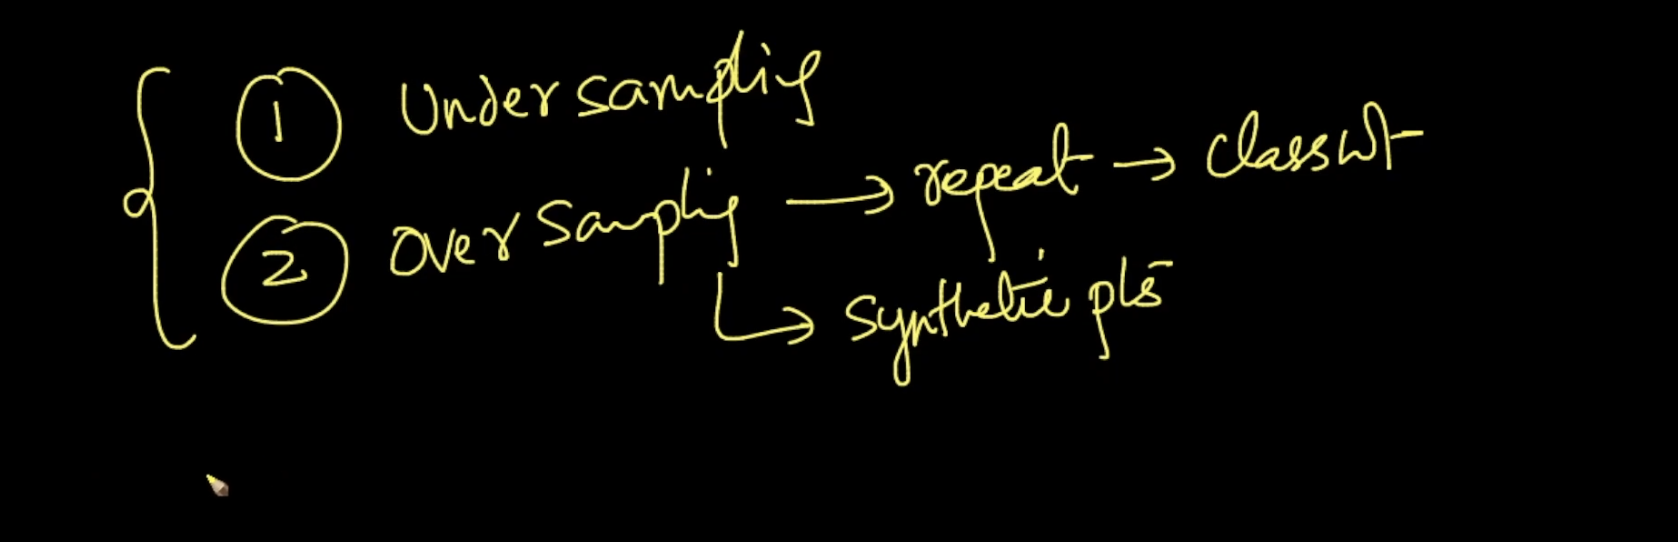 1 Undersampling
2 Over Sampling → repeat → class wt
↳ Synthetic pts